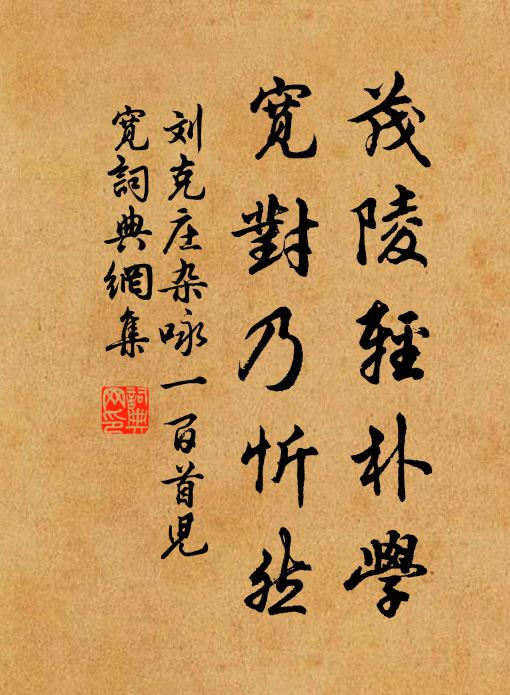 茂陵輕朴學
寬對乃忻然
刘克庄杂咏一百首児
寬詞典網集
詞典
网印